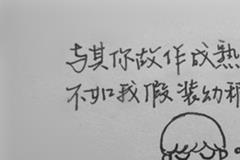 与其你故作成熟
不如我假装幼稚